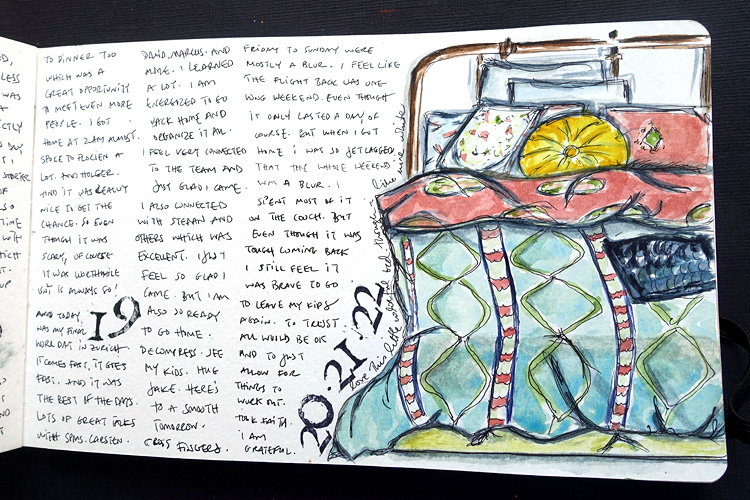 TO DINNER TOO
WHICH WAS A
GREAT OPPORTUNITY
TO MEET EVEN MORE
PEOPLE. I GOT
HOME AT 2AM ALMOST.
SPOKE TO FLORIAN A
LOT. AND HOLGER.
AND IT WAS REALLY
NICE TO GET THE
CHANCE. SO EVEN
THOUGH IT WAS
SCARY, OF COURSE
IT WAS WORTHWHILE
IT IS ALWAYS SO!
19
AND TODAY
WAS MY FINAL
WORK DAY IN ZURICH.
IT COMES FAST, IT GOES
FAST. AND IT WAS
THE BEST OF THE DAYS.
LOTS OF GREAT TALKS
WITH CARSTEN.
DAVID, MARCUS. AND
MORE. I LEARNED
A LOT. I AM
ENERGIZED TO GO
BACK HOME AND
ORGANIZE IT ALL.
I FEEL VERY CONNECTED
TO THE TEAM AND
JUST GLAD I CAME.
I ALSO CONNECTED
WITH STEFAN AND
OTHERS WHICH WAS
EXCELLENT. I JUST
FEEL SO GLAD I
CAME. BUT I AM
ALSO SO READY
TO GO HOME.
DECOMPRESS. SEE
MY KIDS. HUG
JAKE. HERE'S
TO A SMOOTH
TOMORROW.
CROSS FINGERS.
20·21·22
FRIDAY TO SUNDAY WERE
MOSTLY A BLUR. I FEEL LIKE
THE FLIGHT BACK WAS ONE
LONG WEEKEND. EVEN THOUGH
IT ONLY LASTED A DAY OF
COURSE. BUT WHEN I GOT
HOME I WAS SO JETLAGGED
THAT THE WHOLE WEEKEND
WAS A BLUR. I
SPENT MOST OF IT
ON THE COUCH. BUT
EVEN THOUGH IT WAS
TOUGH COMING BACK
I STILL FEEL IT
WAS BRAVE TO GO
TO LEAVE MY KIDS
AGAIN. TO TRUST
ALL WOULD BE OK
AND TO JUST
ALLOW FOR
THINGS TO
WORK OUT.
TOOK FAITH.
I AM
GRATEFUL.
love this little bed though